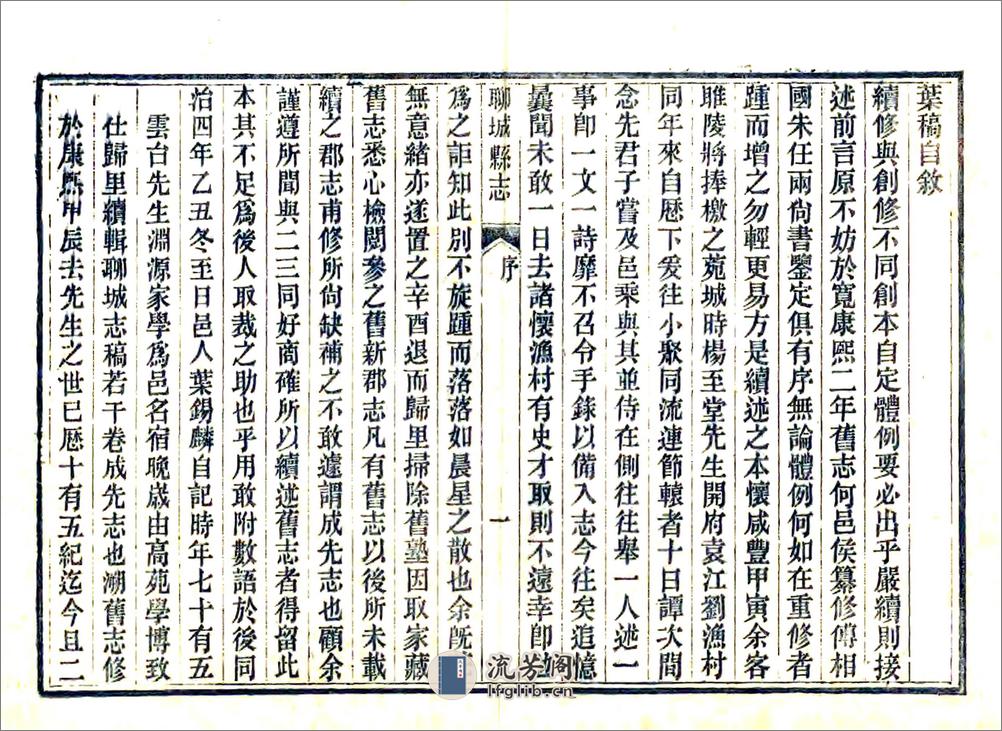 葉稿自敘
續修與創修不同創本自定體例要必出乎嚴續則接
述前言原不妨於寬康熙二年舊志何邑侯纂修傅相
國朱任兩尙書鑒定俱有序無論體例何如在重修者
踵而增之勿輕更易方是續述之本懷咸豐甲寅余客
睢陵將捧檄之菀城時楊至堂先生開府袁江劉漁村
同年來自歷下爰往小聚同流連節轅者十日譚次間
念先君子嘗及邑乘與其並侍在側往往舉一人述一
事卽一文一詩靡不召令手錄以備入志今往矣追憶
曩聞未敢一日去諸懷漁村有史才取則不遠幸卽
聊城縣志
序
一
爲之詎知此別不旋踵而落落如晨星之散也余旣
無意緒亦遂置之辛酉退而歸里掃除舊塾因取家藏
舊志悉心檢閱參之舊新郡志凡有舊志以後所未載
續之郡志甫修所尙缺補之不敢遽謂成先志也顧余
謹遵所聞與二三同好商確所以續述舊志者得留此
本其不足爲後人取裁之助也乎用敢附數語於後同
治四年乙丑冬至日邑人葉錫麟自記時年七十有五
雲台先生淵源家學爲邑名宿晚歲由高苑學博致
仕歸里續輯聊城志稿若干卷成先志也溯舊志修
於康熙甲辰去先生之世已歷十有五紀迄今且二
流芳閣
lfglib.cn